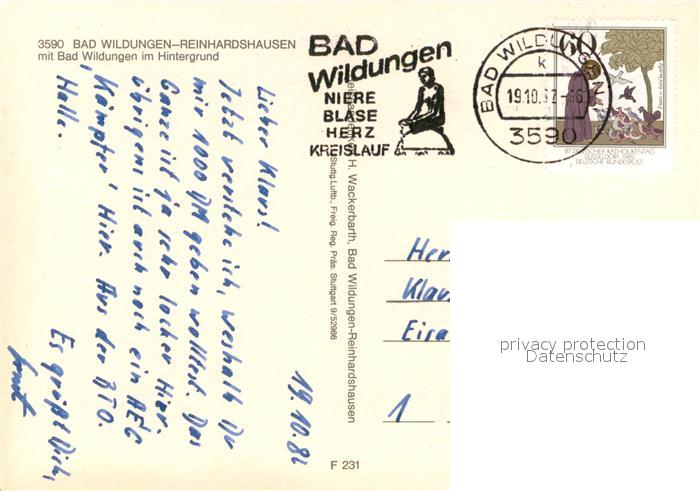 3590 BAD WILDUNGEN–REINHARDSHAUSEN
mit Bad Wildungen im Hintergrund
BAD
Wildungen
NIERE
BLASE
HERZ
KREISLAUF
BAD WILDUNGEN 2
k
19.10.82-16
3590
60
87. DEUTSCHER KATHOLIKENTAG
DÜSSELDORF 1982
DEUTSCHE BUNDESPOST
19.10.82
Lieber Klaus!
Jetzt verstehe ich, weshalb Du
mir 1000 DM geben wolltest. Das
Ganze ist ja sehr locker hier.
Übrigens ist auch noch ein AEG
"Kämpfer" hier. Aus der ZTO.
Halle.
Es grüßt Dich,
H. Wackerbarth, Bad Wildungen-Reinhardshausen
Stuttg. Luftb., Freig. Reg. Präs. Stuttgart 9/52986
F 231
Her
Klau
Eira
1
privacy protection
Datenschutz